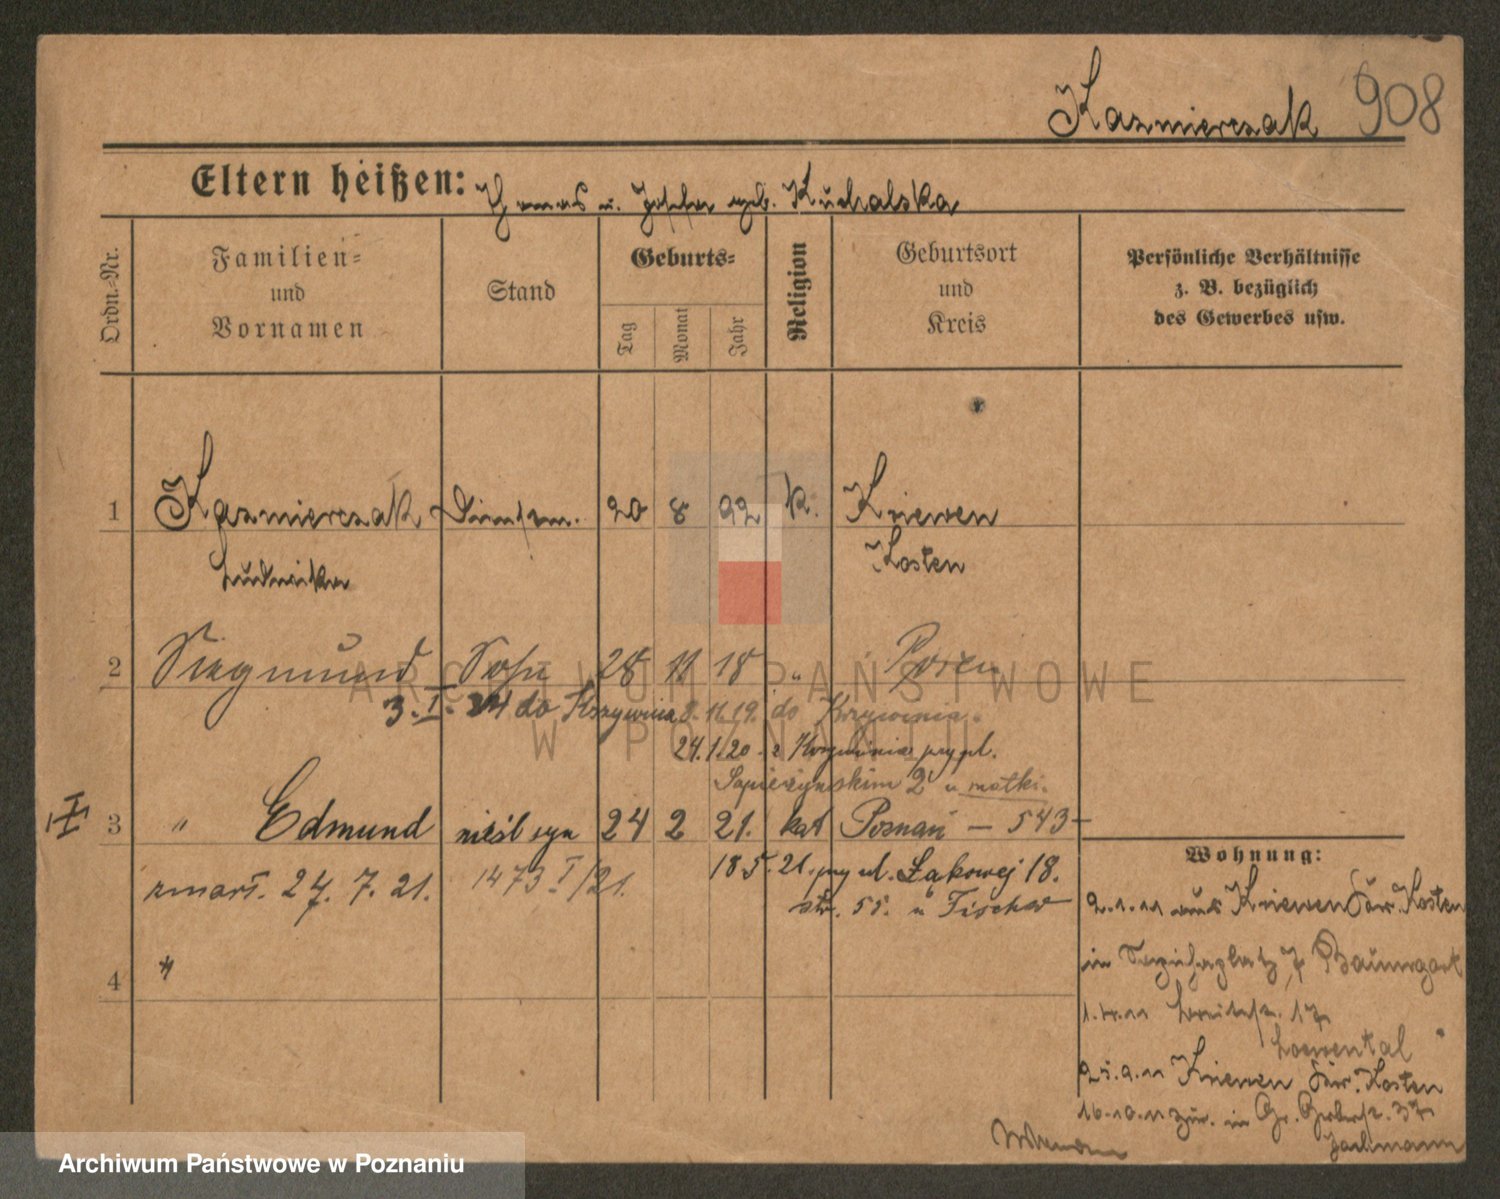 Kazmierczak 908
Eltern heißen: Thomas u. Josefa geb. Kucharska
Ordn.-Nr.
Familien-
und
Vornamen
Stand
Geburts-
Tag
Monat
Jahr
Religion
Geburtsort
und
Kreis
Persönliche Verhältnisse
z. B. bezüglich
des Gewerbes usw.
1 Kazmierczak Dienstm. 20 8 92 k. Kriewen
Ludwika Kosten
2 Siegmund Sohn 28 11 18 „ Posen
3. I. 24 do Krzywinia 8. 11. 19. do Krzywinia.
24.1.20. z Krzywinia przy pl.
Sapieżyńskim 2 u matki.
3 „ Edmund nieśl syn 24 2 21. kat Poznań — 543 —
zmarł. 27. 7. 21. 1473 I/21. 18 5. 21. przy ul. Łąkowej 18.
str. 55. u Fischer
4
Wohnung:
2.1.11 aus Kriewen Kr. Kosten
in Sapiehaplatz 7 Baumgart
1.4.11 Breitestr. 17
Loewental
25.9.11 Kriewen Kr. Kosten
16.10.11 zur. in Gr. Gerberstr. 37
ARCHIWUM PAŃSTWOWE
W POZNANIU
Archiwum Państwowe w Poznaniu